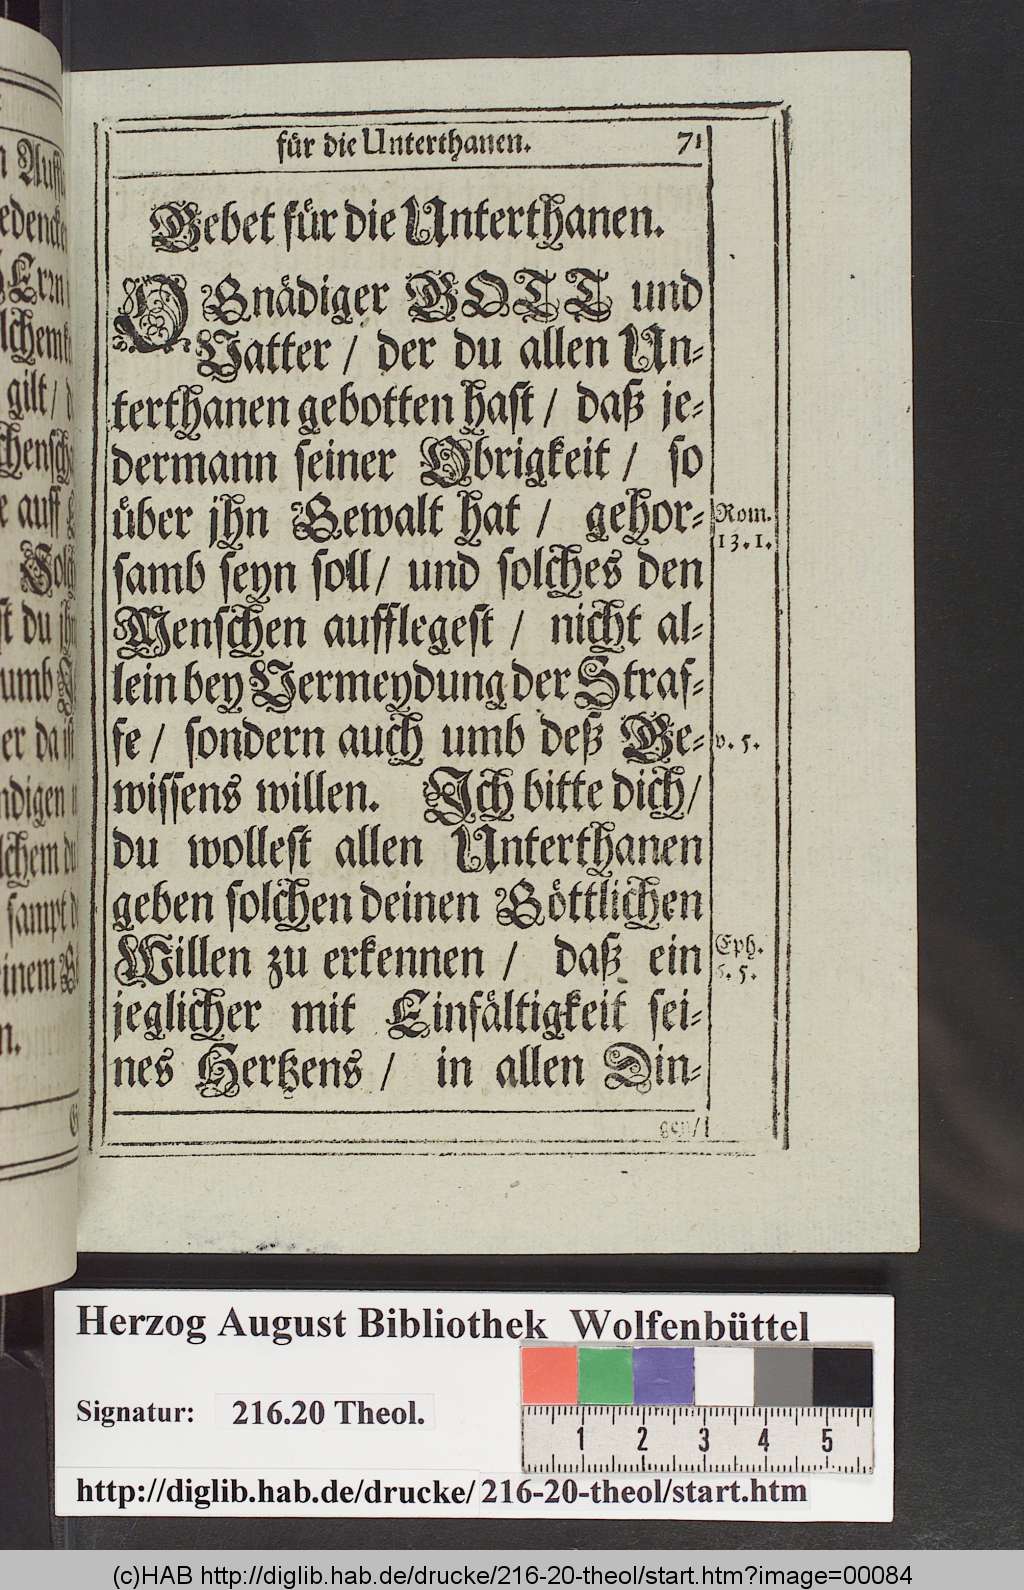 für die Unterthanen. 71
Gebet für die Unterthanen.
O Gnädiger GOTT und
Vatter / der du allen Un-
terthanen gebotten hast / daß je-
dermann seiner Obrigkeit / so
über jhn Gewalt hat / gehor-
samb seyn soll / und solches den
Menschen aufflegest / nicht al-
lein bey Vermeydung der Straf-
fe / sondern auch umb deß Ge-
wissens willen. Ich bitte dich /
du wollest allen Unterthanen
geben solchen deinen Göttlichen
Willen zu erkennen / daß ein
jeglicher mit Einfältigkeit sei-
nes Hertzens / in allen Din-
Rom.
13. 1.
v. 5.
Eph.
6. 5.
gilt /
auff
Solch
st du jhn
umb
er da ist
sampt
n.
Herzog August Bibliothek Wolfenbüttel
Signatur: 216.20 Theol.
1 2 3 4 5
http://diglib.hab.de/drucke/216-20-theol/start.htm
(c)HAB http://diglib.hab.de/drucke/216-20-theol/start.htm?image=00084